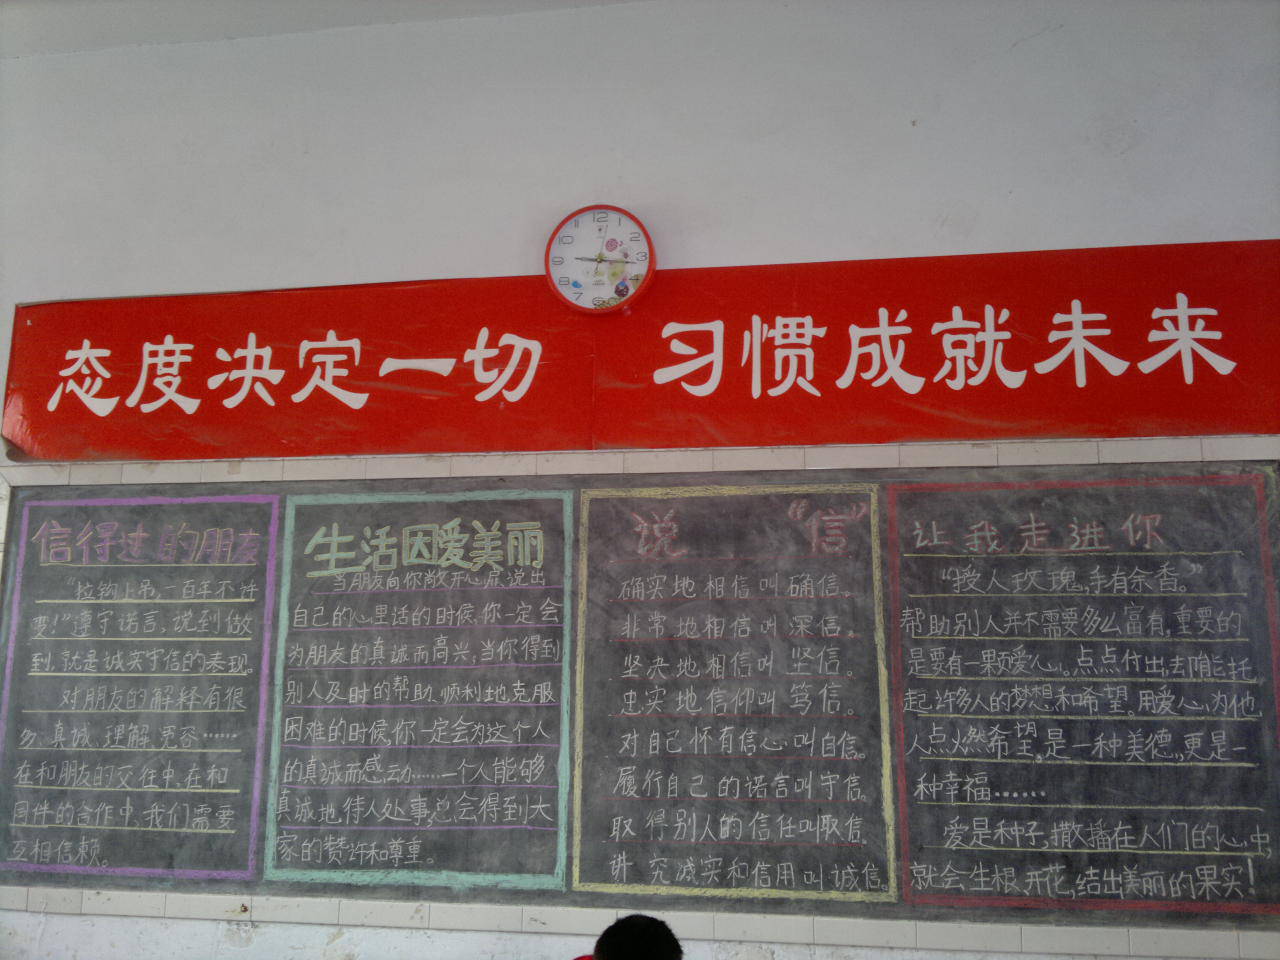 12
1
2
3
4
7
8
9
10
11
态度决定一切 习惯成就未来
信得过的朋友
“拉钩上吊,一百年不许
变!”遵守诺言,说到做
到,就是诚实守信的表现。
对朋友的解释有很
多,真诚、理解、宽容……
在和朋友的交往中,在和
同伴的合作中,我们需要
互相信赖。
生活因爱美丽
当朋友向你敞开心扉,说出
自己的心里话的时候,你一定会
为朋友的真诚而高兴,当你得到
别人及时的帮助,顺利地克服
困难的时候,你一定会为这个人
的真诚而感动……一个人能够
真诚地待人处事,总会得到大
家的赞许和尊重。
说 “信”
确实地相信叫确信。
非常地相信叫深信。
坚决地相信叫坚信。
忠实地信仰叫笃信。
对自己怀有信心叫自信。
履行自己的诺言叫守信。
取得别人的信任叫取信。
讲究诚实和信用叫诚信。
让我走进你
“授人玫瑰,手有余香。”
帮助别人并不需要多么富有,重要的
是要有一颗爱心。点点付出,却能托
起许多人的梦想和希望。用爱心,为他
人点燃希望,是一种美德,更是一
种幸福……
爱是种子,撒播在人们的心中,
就会生根,开花,结出美丽的果实!